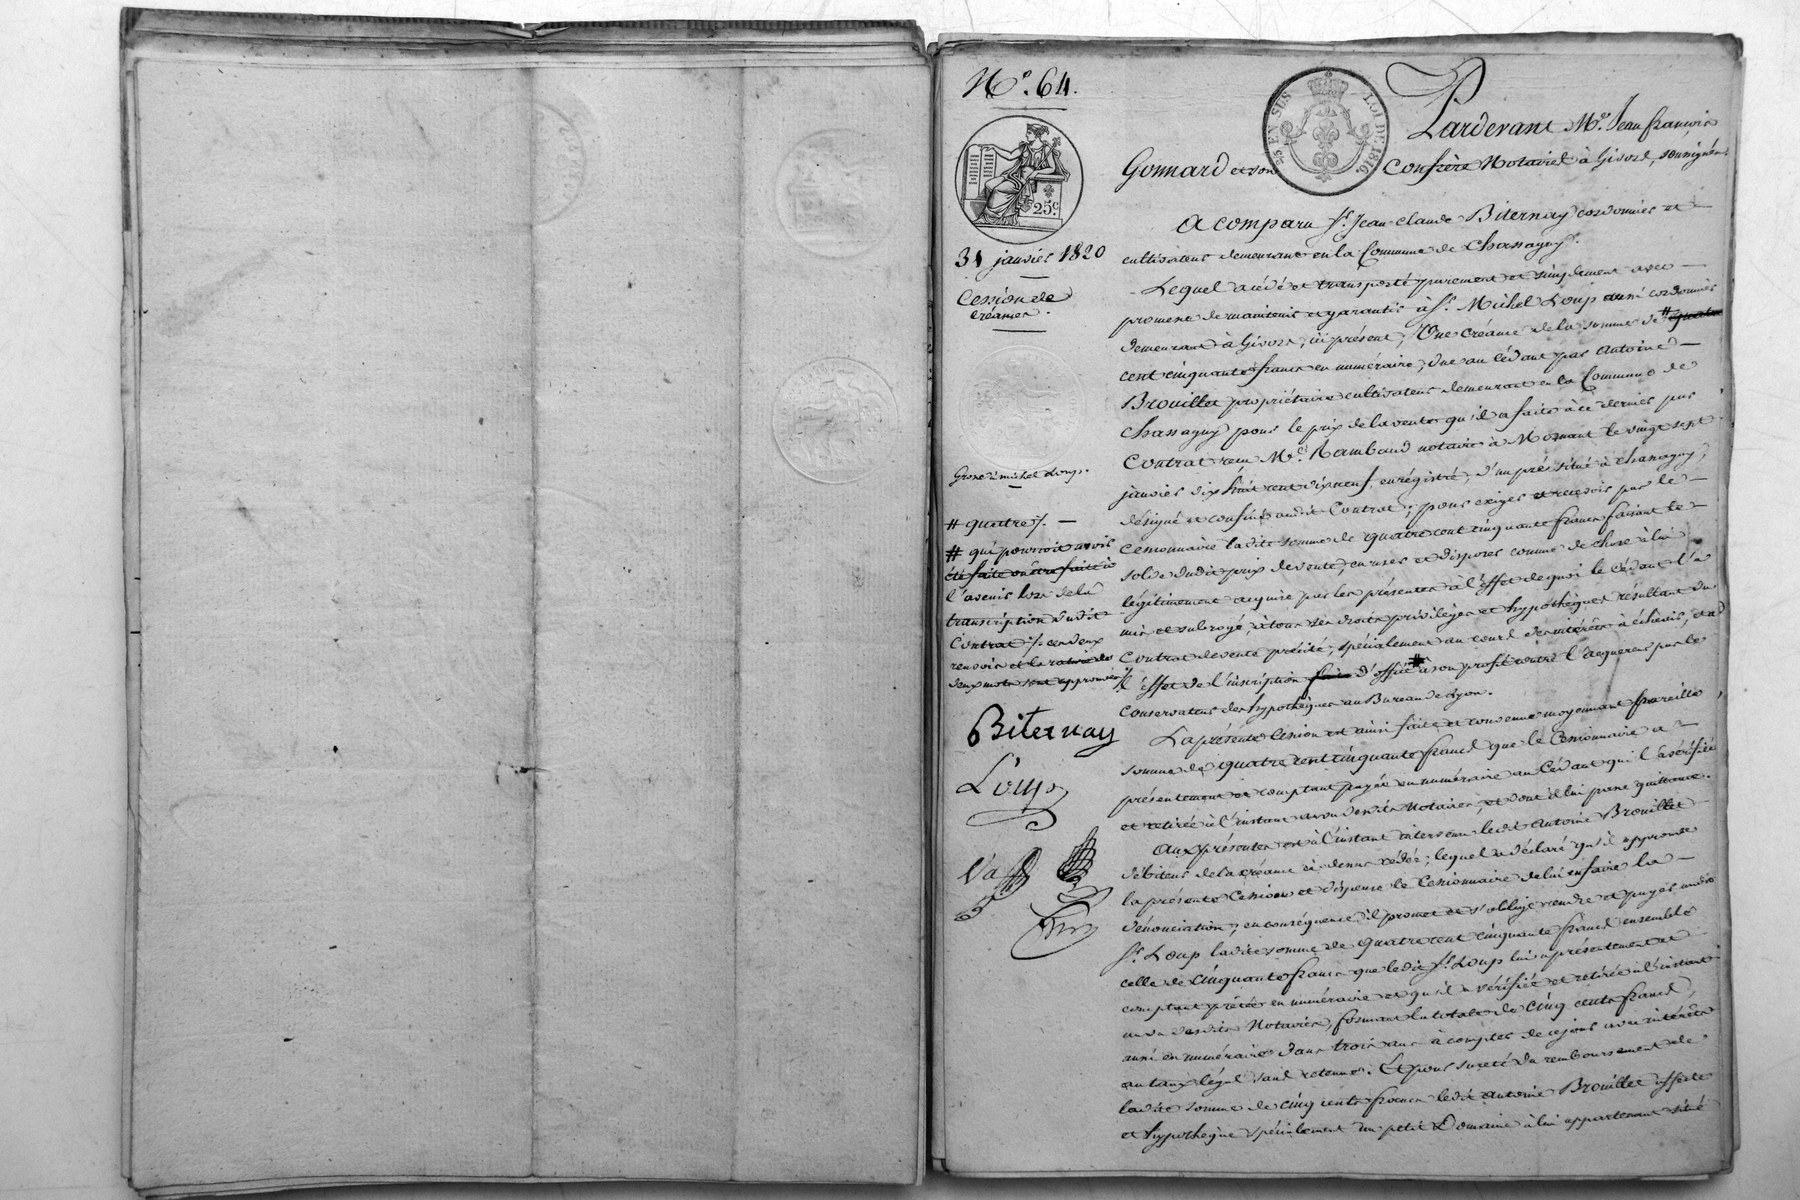 N.º 64.
25.c
EN SUS
LOI DE 1816.
31 janvier 1820
Cession de
créances.
Grosse à michel Loup.
# quatre /. —
# qui pourroit avoir
été faite ou être faite à
l'avenir lors de la
transcription dudit
Contrat /. ces deux
renvois et la rature de
deux mots sont approuvés /.
Biternay
Loup
Pardevant M.e Jean françois
Gonnard et son Confrère Notaires à Givors, soussignés
A comparu S.r Jean Claude Biternay cordonnier et
cultivateur demeurant en la Commune de Chassagny.
Lequel a cédé et transporté purement et simplement avec
promesse de maintenir et garantir à S.r Michel Loup aussi cordonnier
demeurant à Givors, ici présent, Une Créance de la somme de # quatre
cent cinquante francs en numéraire, due au Cédant par Antoine
Brouillet propriétaire cultivateur demeurant en la Commune de
Chassagny pour le prix de la vente qu'il a faite à ce dernier par
Contrat reçu M.e Rambaud notaire à Mornant le vingt sept
janvier dix huit cent dix neuf, enrégistré, d'un pré situé à Chassagny,
désigné et confiné audit Contrat; pour exiger et recevoir par le
Cessionnaire ladite somme de quatre cent cinquante francs faisant le
solde dudit prix de vente, en user et disposer comme de chose à lui
légitimement acquise par les présentes à l'effet de quoi le Cédant l'a
mis et subrogé, à tous ses droits privilèges et hypothèques résultant du
Contrat de vente précité, spécialement au cours des intérêts à échoir, et à
l'effet de l'inscription faite d'office # à son profit contre l'acquéreur par le
Conservateur des hypothèques au Bureau de Lyon.
La présente Cession est ainsi faite et convenue moyennant pareille
somme de quatre cent cinquante francs que le Cessionnaire a
présentement et comptant payée en numéraire au Cédant qui l'a vérifiée
et retirée à l'instant au vu desdits Notaires, et dont il lui passe quittance.
Aux présentes est à l'instant intervenu ledit Antoine Brouillet
débiteur de la créance ci dessus cédée; lequel a déclaré qu'il approuve
la présente Cession et dispense le Cessionnaire de lui en faire la
dénonciation, en conséquence il promet et s'oblige rendre et payer audit
S.r Loup ladite somme de quatre cent cinquante francs ensemble
celle de cinquante francs que ledit S.r Loup lui a présentement et
comptant prêtée en numéraire et qu'il a vérifiée et retirée à l'instant
au vu desdits Notaires, formant la totale de cinq cents francs,
aussi en numéraire dans trois ans à compter de ce jour avec intérêts
au taux légal sans retenue. Et pour sureté du remboursement de
ladite somme de cinq cents francs ledit Antoine Brouillet affecte
et hypothèque spécialement un petit Domaine à lui appartenant situé